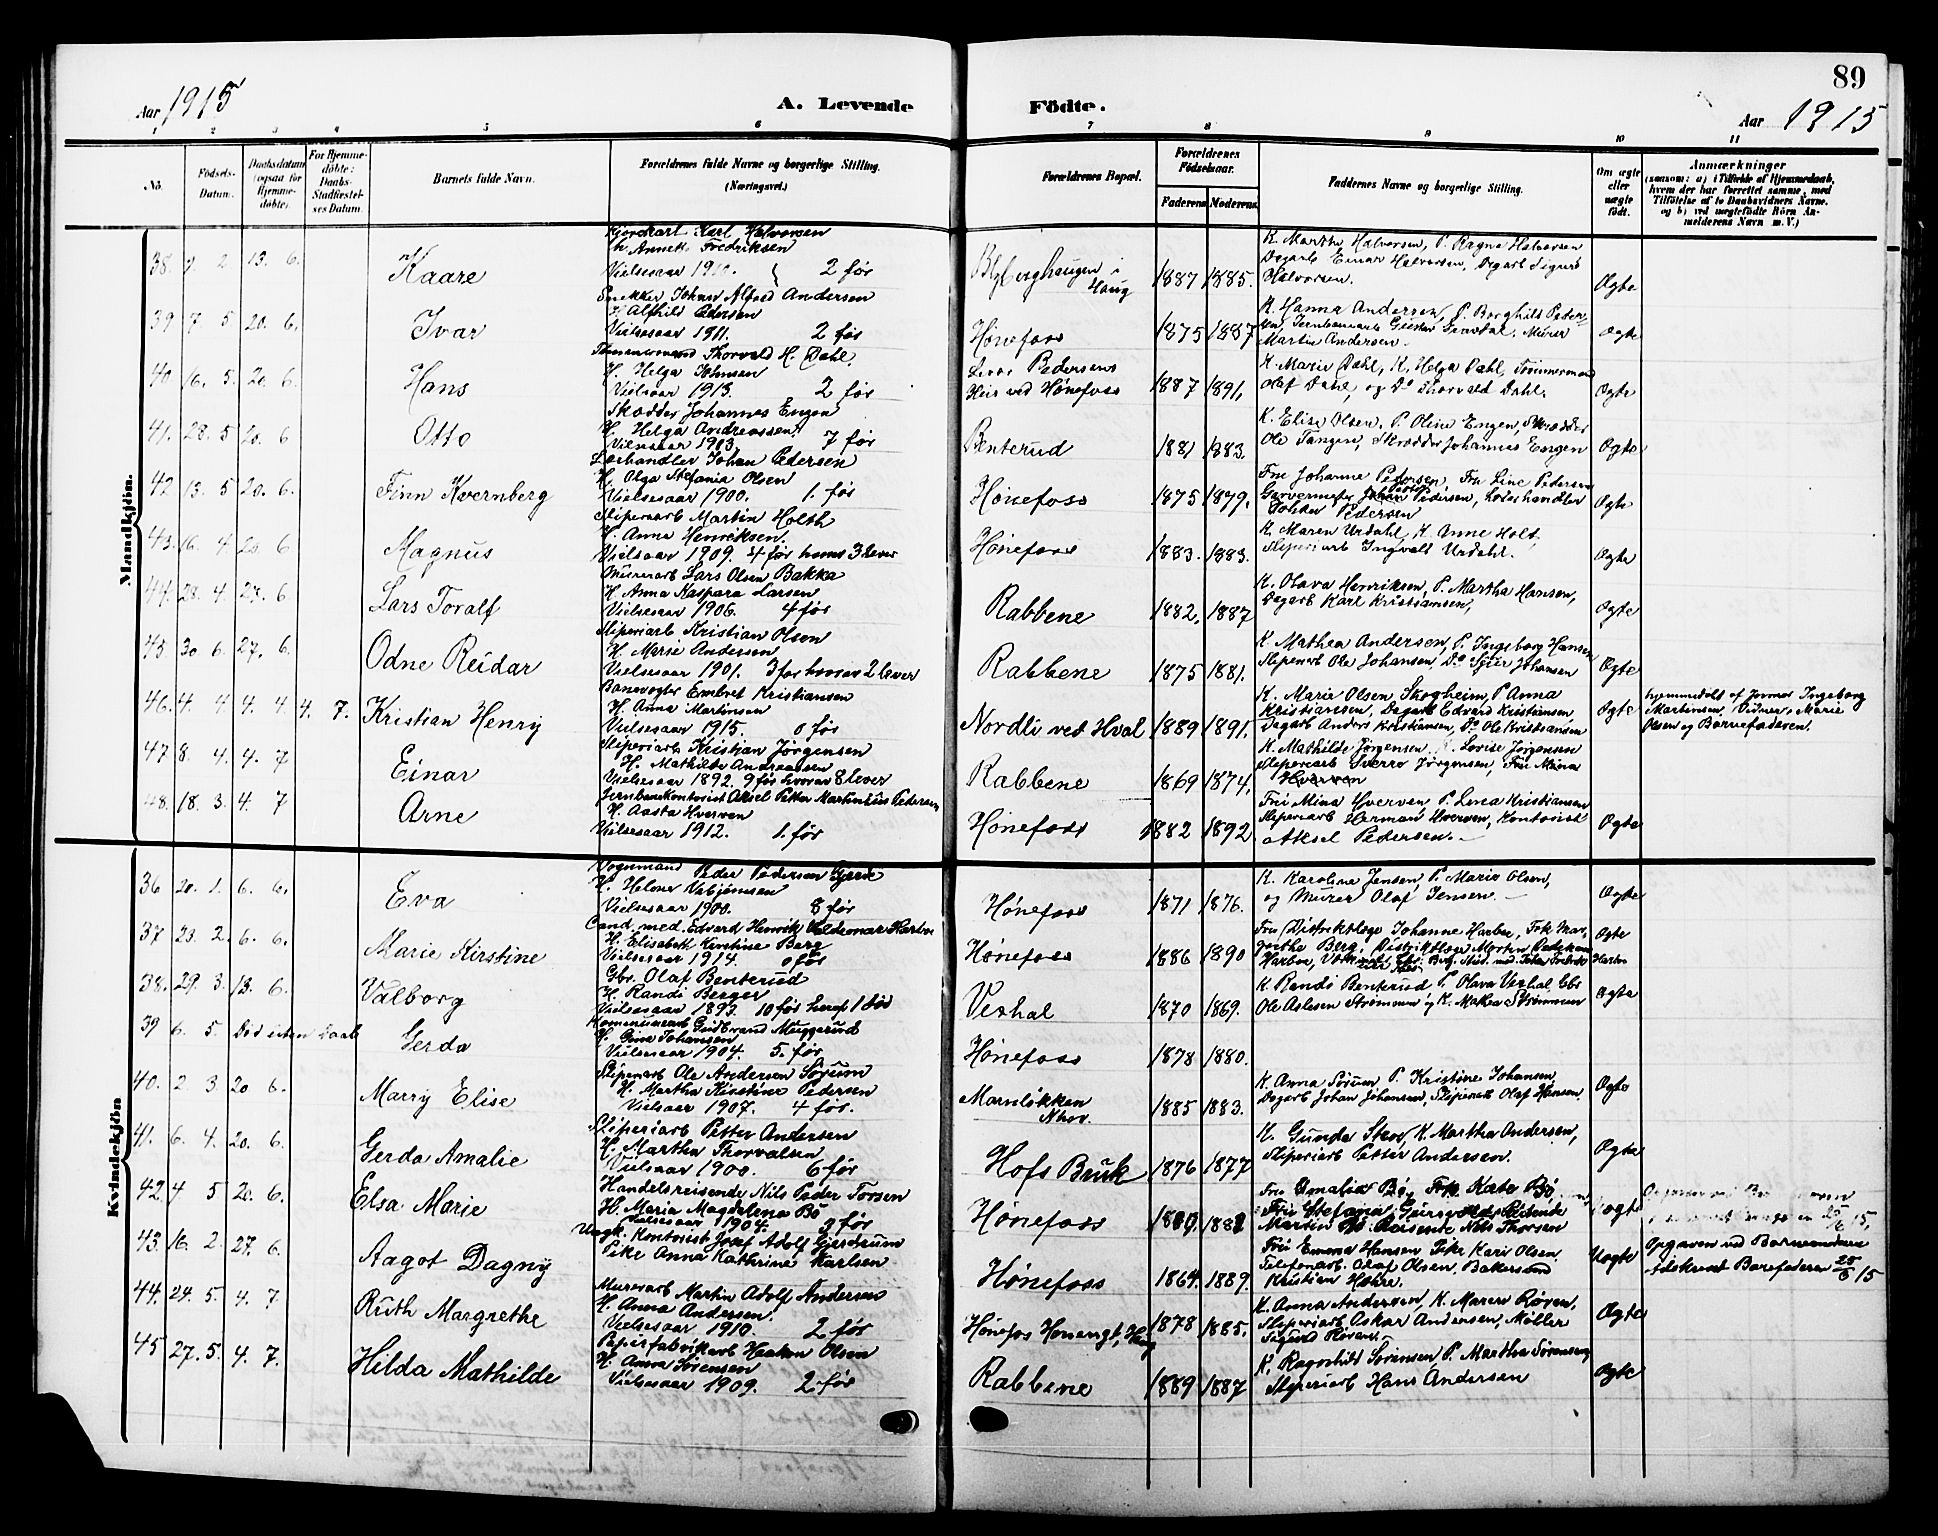 89
Aar 1915
A. Levende
Födte.
Aar 1915
1 2 3 4 5 6 7 8 9 10 11
No.
Födsels-
Datum.
Daabsdatum
(ogsaa for
Hjemme-
döbte).
For Hjemme-
döbte:
Daabs-
Stadfæstel-
ses Datum.
Barnets fulde Navn.
Forældrenes fulde Navne og borgerlige Stilling.
(Næringsvei.)
Forældrenes Bopæl.
Forældrenes
Födselsaar.
Faderens Moderens
Faddernes Navne og borgerlige Stilling.
Om ægte
eller
uægte
födt.
Anmærkninger
(saasom: a) i Tilfælde af Hjemmedaab,
hvem der har forrettet samme, med
Tilföielse af to Daabsvidners Navne,
og b) ved uægtefödte Börn An-
melderens Navn m. V.)
Mandkjön.
38. 9 2 13. 6. Kaare
Karl Halvorsen
H. Annette Fredriksen
Vielsesaar 1910. 2 før
Haug
1887 1885.
K. Marthe Halvorsen, P. Ragna Halvorsen
Dagarb Einar Halvorsen, Dagarb Sigurd
Halvorsen.
Ægte
39 7 5 20. 6. Ivar
Snekker Johan Alfred Andersen
H. Alfhild Pedersen
Vielsesaar 1911. 2 før
Hønefoss
1875 1887
K. Hanna Andersen, P. Borghild Peder-
Murer
Martin Andersen.
Ægte
40 16. 5. 20 6. Hans
Tømmermand Thorvald H. Dahl.
H. Helga Johnsen
Vielsaar 1913. 2 før
Pedersens
Hus ved Hønefoss
1887 1891.
K. Marie Dahl, K. Helga Dahl, Tømmermand
Olaf Dahl, og Do Thorvald Dahl.
Ægte
41. 28. 5 20. 6 Otto
Skrædder Johannes Engen
H. Helga Andreassen.
Vielsesaar 1903. 7 før
Benterud
1881 1883.
K. Elise Olsen, P. Oline Engen, Skrædder
Ole Tangen, Skrædder Johannes Engen
Ægte
42 13. 5 20. 6. Finn Kvernberg
Lærhandler Johan Pedersen
H. Olga Stefania Olsen
Vielsesaar 1900. 1. før
Hønefoss
1875 1879.
Fru Johanne Pedersen, Fru Line Pedersen
Garvermester Pedersen, Lærhandler
Johan Pedersen
Ægte
43. 16. 4 20. 6 Magnus
Sliperiarb Martin Holth
H. Anna Henriksen.
Vielsesaar 1909. 4 før hvoraf 3 lever
Hønefoss
1883. 1883.
K. Maren Urdahl, K. Anne Holt,
Sliperiarb Ingvald Urdahl.
Ægte
44. 28. 4. 27. 6. Lars Toralf
Murerarb Lars Olsen Bakka
H. Anna Kaspara Larsen
Vielsesaar 1906. 4 før
Rabbene
1882. 1887
K. Olava Henriksen, P. Martha Hansen,
Dagarb Karl Kristiansen,
Ægte
45 30 6. 27. 6. Odne Reidar
Sliperiarb Kristian Olsen
H. Marie Andersen
Vielsesaar 1901. 3 før hvoraf 2 lever
Rabbene
1875 1881.
K. Mathea Andersen, P. Ingeborg Hansen
Sliperiarb Ole Johansen, Do Johansen
Ægte
46. 4. 4. 4. 4 4. 7. Kristian Henry
Banevogter Embret Kristiansen
H. Anna Martinsen
Vielsesaar 1915. 0 før
Nordli ved Hval
1889 1891.
K. Marie Olsen, Skogheim, P. Anna
Kristiansen, Dagarb Edvard Kristiansen
Dagarb Anders Kristiansen, Do Ole Kristiansen
Ægte
Hjemmedøbt af Jormor Ingeborg
Martinsen, Vidner: Marie
Olsen og Barnefaderen.
47 8. 4. 4. 7 Einar
Sliperiarb Kristian Jørgensen
H. Mathilde Andreassen
Vielsesaar 1892. 9 før hvoraf 8 lever
Rabbene
1869 1874.
K. Mathilde Jørgensen, K. Lovise Jørgensen
Sliperiarb Sverre Jørgensen, Fru Mina
Hverven
48. 18. 3. 4. 7 Arne
Jernbanekontorist Aksel Petter Martinius Pedersen
H. Aasta Hverven
Vielsesaar 1912. 1. før
Hønefoss
1882 1892
Fru Mina Hverven P. Lena Kristiansen
Sliperiarb Herman Hverven, Kontorist
Aksel Pedersen.
Ægte
Kvindekjön
36 20. 1. 6. 6. Eva
Vognmand Peder Pedersen Gjerde
H. Helene
Vielsesaar 1900. 8 før
Hønefoss
1871 1876.
K. Karoline Jensen, P. Marie Olsen,
og Murer Olaf Jensen.
Ægte
37 23. 2. 6. 6. Marie Kirstine
Cand. med. Edvard Henrik Valdemar Harboe
H. Elisabeth Kirstine Berg
Vielsesaar 1914. 0 før
Hønefoss
1886 1890
Fru Distriktslæge Johanne Harboe, Frk Mar-
grethe Berg, Distriktslæge Morten
Harboe,
Ægte
38. 29. 3. 13. 6. Valborg
Gbr. Olaf Benterud
H. Randi Berger
Vielsesaar 1893. 10 før heraf 1 død
Veshal
1870 1869.
K. Randi Benterud P. Olava Veshal, Gbr
Ole Aslesen Strømmen og K. Strømmen
Ægte
39 6. 5. Død uden Daab Gerda
Kommunearb Gudbrand Muggerud
H. Gina Johansen
Vielsesaar 1904. 5. før
Hønefoss
1878 1880.
40. 2 3 20 6. Marry Elise
Sliperiarb Ole Andersen Sørum
H. Martha Kirstine Pedersen
Vielsaar 1907. 4 før.
1885 1883.
K. Anna Sørum, P. Kristine Johansen
Dagarb Johan Johansen, Sliperiarb Olaf Hansen.
Ægte
41. 6. 4. 20. 6. Gerda Amalie
Sliperiarb Petter Andersen
H. Martha Thorvalsen
Vielsaar 1900. 6 før
Hofs Bruk
1876 1877
K. Gunda K. Martha Andersen,
Sliperiarb Petter Andersen.
Ægte
42 4 5 20. 6. Elsa Marie
Handelsreisende Nils Peder Torsen
H. Maria Magdalena Bø
Vielsesaar 1904. 3 før
Hønefoss
Fru Amalia Bø, Frk Kate Bø,
Fru Stefana
Martin Bø, Reisende Nils Thorsen
Ægte
43. 16. 2. 27. 6. Aagot Dagny
Ungk. Kontorist Josef Adolf Gjestrum
Pike Anna Kathrine Karlsen
Hønefoss
1864. 1889.
Fru Emma Hansen Pike Kari Olsen
Telefonarb. Olaf Olsen, Bakersvend
Kristian
Uægte
Opgaven ved Barnemoderen
tilskrevet Barnefaderen 25/6 15
44. 24. 5. 4. 7. Ruth Margrethe
Murerarb Martin Adolf Andersen
H. Anna Andersen.
Vielsesaar 1910. 2 før
1878 1885.
K. Anna Andersen, K. Maren Røren,
Sliperiarb Oskar Andersen, Møller
Sigurd Røren.
Ægte
45 27. 5. 4. 7. Hilda Mathilde
Papirfabrikarb Haakon Olsen
H. Anna Sørensen
Vielsesaar 1909. 2 før
Rabbene
1889 1887
K. Ragnhild Sørensen P. Martha Sørensen
Sliperiarb Hans Andersen
Ægte